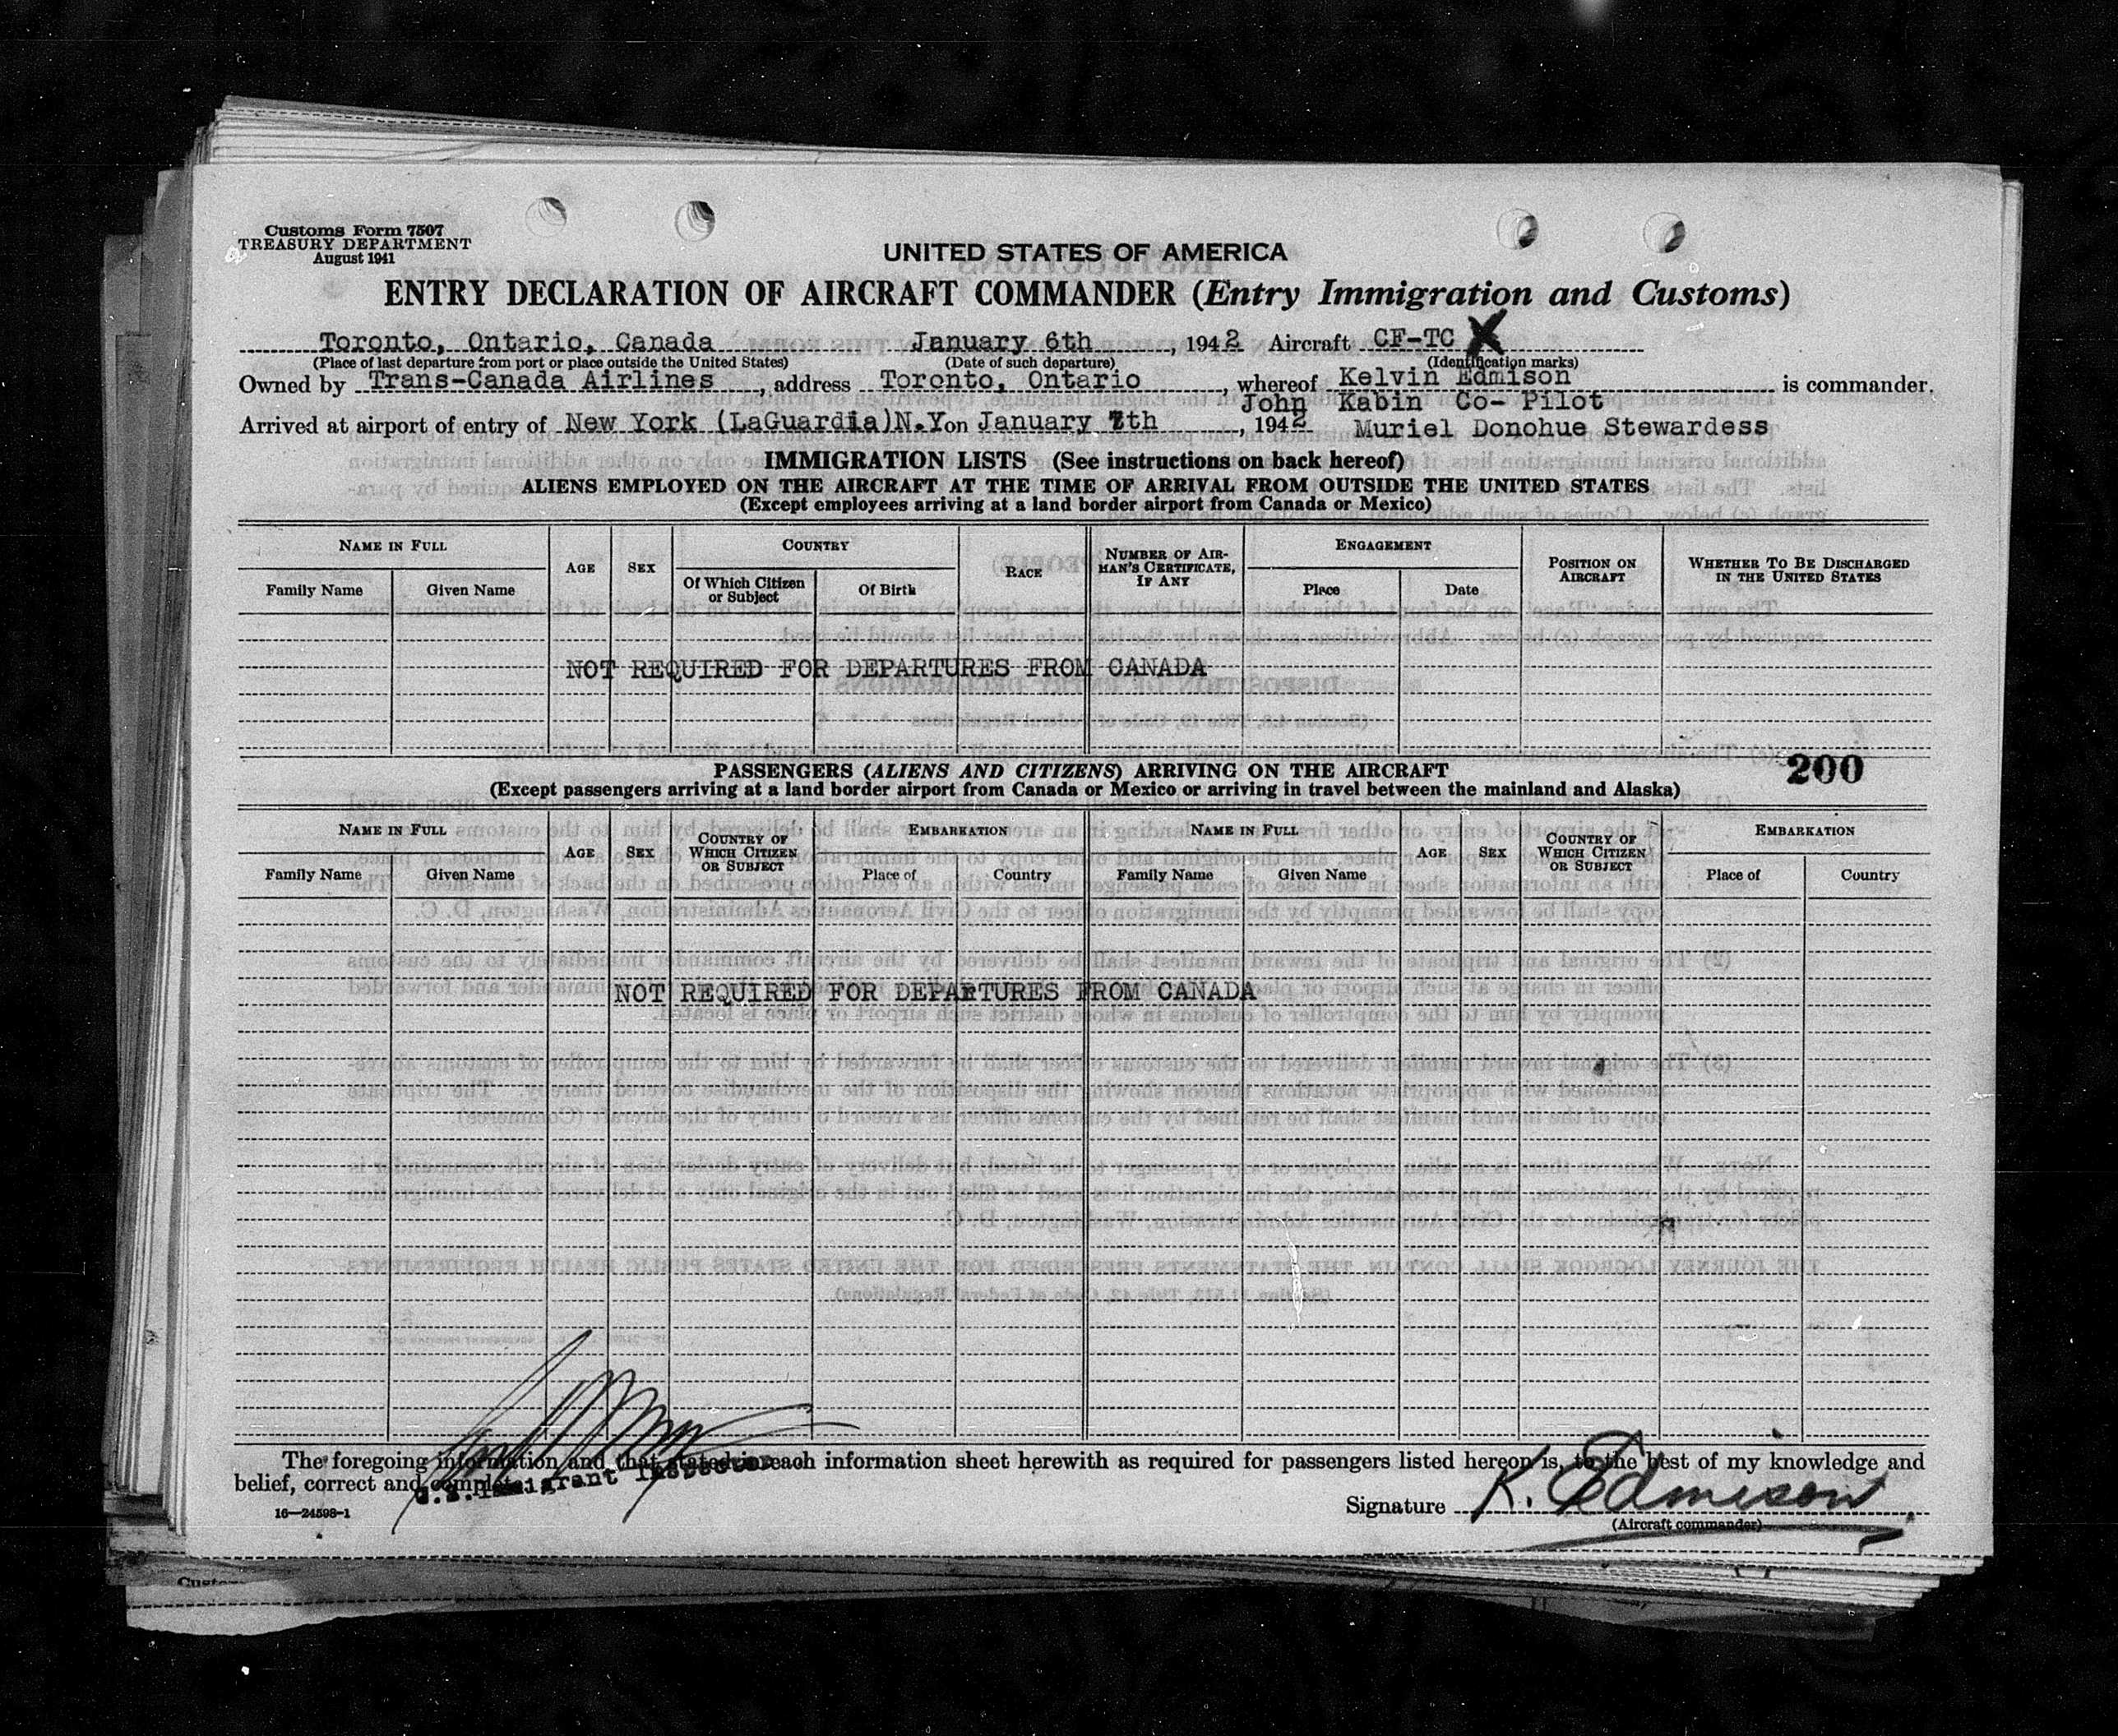 Customs Form 7507
TREASURY DEPARTMENT
August 1941
UNITED STATES OF AMERICA
ENTRY DECLARATION OF AIRCRAFT COMMANDER (Entry Immigration and Customs)
Toronto, Ontario, Canada January 6th, 1942 Aircraft CF-TC X
(Place of last departure from port or place outside the United States) (Date of such departure) (Identification marks)
Owned by Trans-Canada Airlines, address Toronto, Ontario, whereof Kelvin Edmison is commander.
John Kabin Co- Pilot
Arrived at airport of entry of New York (LaGuardia)N.Y. on January 7th, 1942 Muriel Donohue Stewardess
IMMIGRATION LISTS (See instructions on back hereof)
ALIENS EMPLOYED ON THE AIRCRAFT AT THE TIME OF ARRIVAL FROM OUTSIDE THE UNITED STATES
(Except employees arriving at a land border airport from Canada or Mexico)
NAME IN FULL AGE SEX COUNTRY RACE NUMBER OF AIRMAN'S CERTIFICATE, IF ANY ENGAGEMENT POSITION ON AIRCRAFT WHETHER TO BE DISCHARGED IN THE UNITED STATES
Family Name Given Name Of Which Citizen or Subject Of Birth Place Date
NOT REQUIRED FOR DEPARTURES FROM CANADA
200
PASSENGERS (ALIENS AND CITIZENS) ARRIVING ON THE AIRCRAFT
(Except passengers arriving at a land border airport from Canada or Mexico or arriving in travel between the mainland and Alaska)
NAME IN FULL AGE SEX COUNTRY OF WHICH CITIZEN OR SUBJECT EMBARKATION NAME IN FULL AGE SEX COUNTRY OF WHICH CITIZEN OR SUBJECT EMBARKATION
Family Name Given Name Place of Country Family Name Given Name Place of Country
NOT REQUIRED FOR DEPARTURES FROM CANADA
The foregoing information and that stated in each information sheet herewith as required for passengers listed hereon is, to the best of my knowledge and
belief, correct and complete.
U.S. Immigrant Inspector
16—24598-1
Signature K. Edmison
(Aircraft commander)